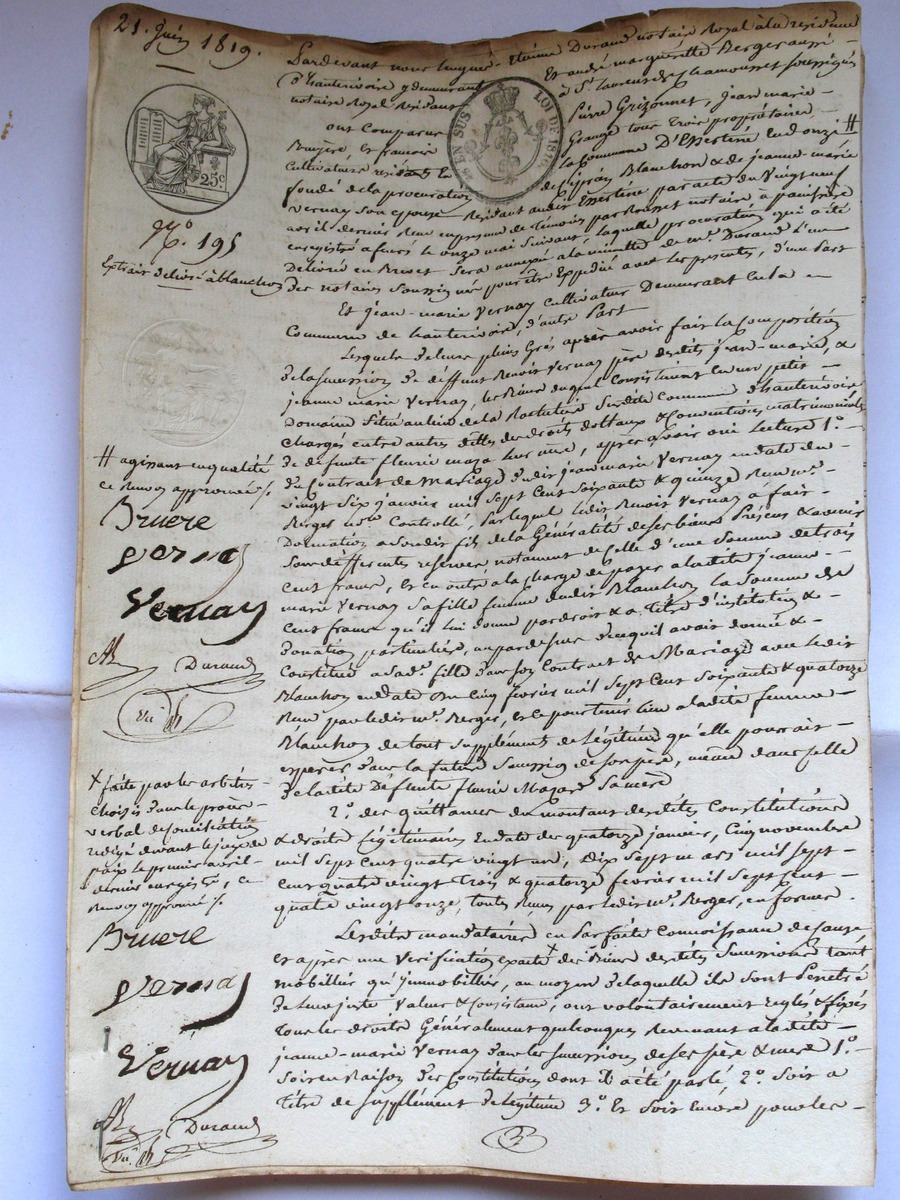 21. Juin 1819.
Pardevant nous Étienne Durand notaire Royal à la résidence
d'hauterivoire y demeurant Et andré marguerite Berger aussi
notaire Royal Résidant à St. Laurent de Chamousset soussignés
ont Comparu Pierre Grizonnet, jean marie
Bruyère et francois Grange tous trois propriétaires
Cultivateurs la Commune D'Essertine en donzi #
fondé de la procuration Blanchon & de jeanne-marie
Vernay son epouse Résidant audit Essertine par acte du Vingt neuf
avril dernier Reçu en presence de témoins par notaire à
enregistré à feurs le onze mai suivant, laquelle procuration qui a été
Delivré en Brevet Sera annexée à la minutte de me. Durand L'un
des notaires Soussignés pour être Expedié avec les presentes, d'une Part
Et jean-marie Vernay Cultivateur Demeurant en la
Commune de hauterivoire, d'autre Part
Lesquels de leurs pleins Grés après avoir fait la Composition
de la succession de deffunt Benoit Vernay père desdits jean-marie, &
jeanne marie Vernay, les Biens duquel Consistaient en un petit
domaine Situé au lieu de la Susdite Commune d'hauterivoire
chargés entre autres dettes des droits dottaux & Conventions matrimoniales
de defunte fleurie leur mère, après avoir oui Lecture 1.o
du Contract de Mariage dudit jean marie Vernay en date du
vingt six janvier mil sept Cent Soixante & quinze Reçu me.
Berger Controllé, par lequel ledit Benoit Vernay a fait
Donnation a son dit fils de la Généralité de ses biens Présens & avenir
Sous differentes reserves, notament de Celle d'une Somme de trois
Cent francs, et en outre à la charge de payer à ladite jeanne
marie Vernay Sa fille femme dudit Blanchon La Somme de
Cent francs qu'il lui donne par droit & a Titre d'institution &
donation particulière, au par dessus de ce quil avait donné &
Constitué a Sade. fille dans son Contract de Mariage avec ledit
Blanchon en date du Cinq février mil Sept Cent Soixante & quatorze
Reçu par ledit me. Berger, et ce pour tenir lieu à ladite femme
Blanchon de tout Supplément de Légitime qu'elle pourrait
esperer dans la future Succession de son père, même dans Celle
de ladite Défunte fleurie Sa mère
2.o des quittances du montant desdites Constitutions
& droits Légitimaires en date des quatorze janvier, Cinq novembre
mil Sept Cent quatre vingt un, Dix Sept mars mil Sept
Cent quatre vingt Trois & quatorze fevrier mil Sept Cent
quatre vingt onze, toutes Reçues par ledit me. Berger, en forme
Lesdits mandataires en Parfaite Connoissance de Cause
et après une Verification exacte + des Biens desdites Successions tant
mobillier qu'jmmobillier, au moyen de laquelle ils sont Penetré
de leur juste Valeur & Consistance, ont volontairement reglés & fixés
tous les droits Généralement quelconques Revenant à ladite
jeanne-marie Vernay dans les Successions de Ses père & mère 1.o
Soit en Raison des Constitutions dont il a été parlé, 2.o Soit a
Titre de Supplément de Légitime 3.o Et Soit Encore pour les
EN SUS
LOI DE 1816.
25c.
No. 195
Extrait delivré à blanchon
# agissant en qualité
ce Renvoi approuvé ./.
Bruere
Verna
Vernay
Durand
+ faite par les arbitres
choisis dans le procès
verbal de Conciliation
redigé devant le juge de
paix le premier avril
dernier enregistré, ce
Renvoi approuvé ./.
Bruere
Verna
Vernay
Durand